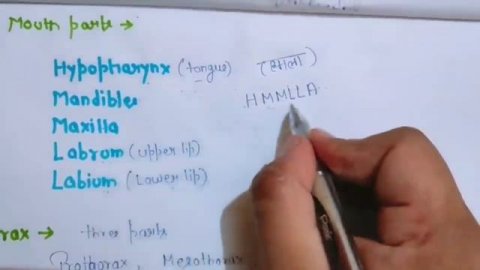 Mouth parts →
Hypopharynx (tongue) (साला)
Mandibles HMMLLA
Maxilla
Labrum (upper lip)
Labium (Lower lip)
rax → three parts
Prothorax, Mesothorax